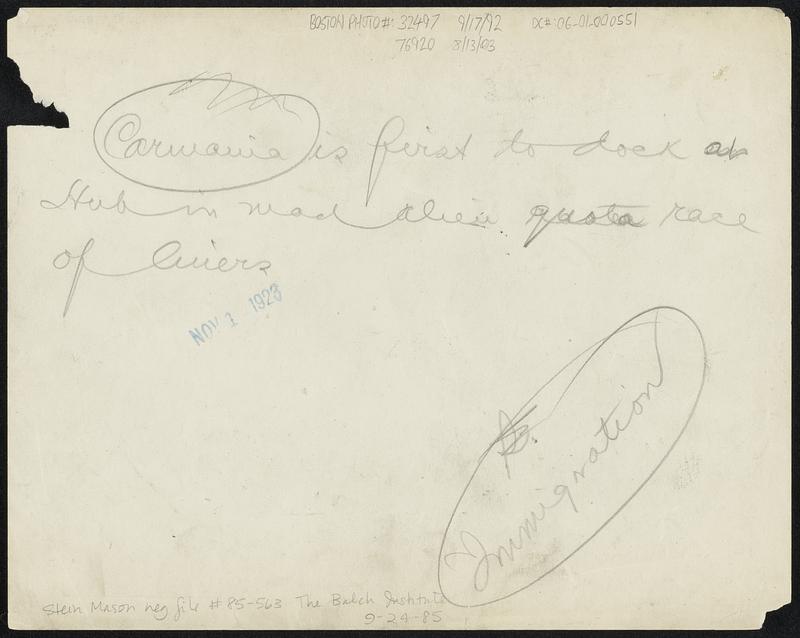 BOSTON PHOTO #: 32497 9/17/92 DC#: 06-01-000551
76920 8/13/03
Carmania is first to dock at
Hub in mad alien quota race
of liners
NOV 1 1923
Immigration
Stein Mason neg file # 85-563 The Balch Institute
9-24-85